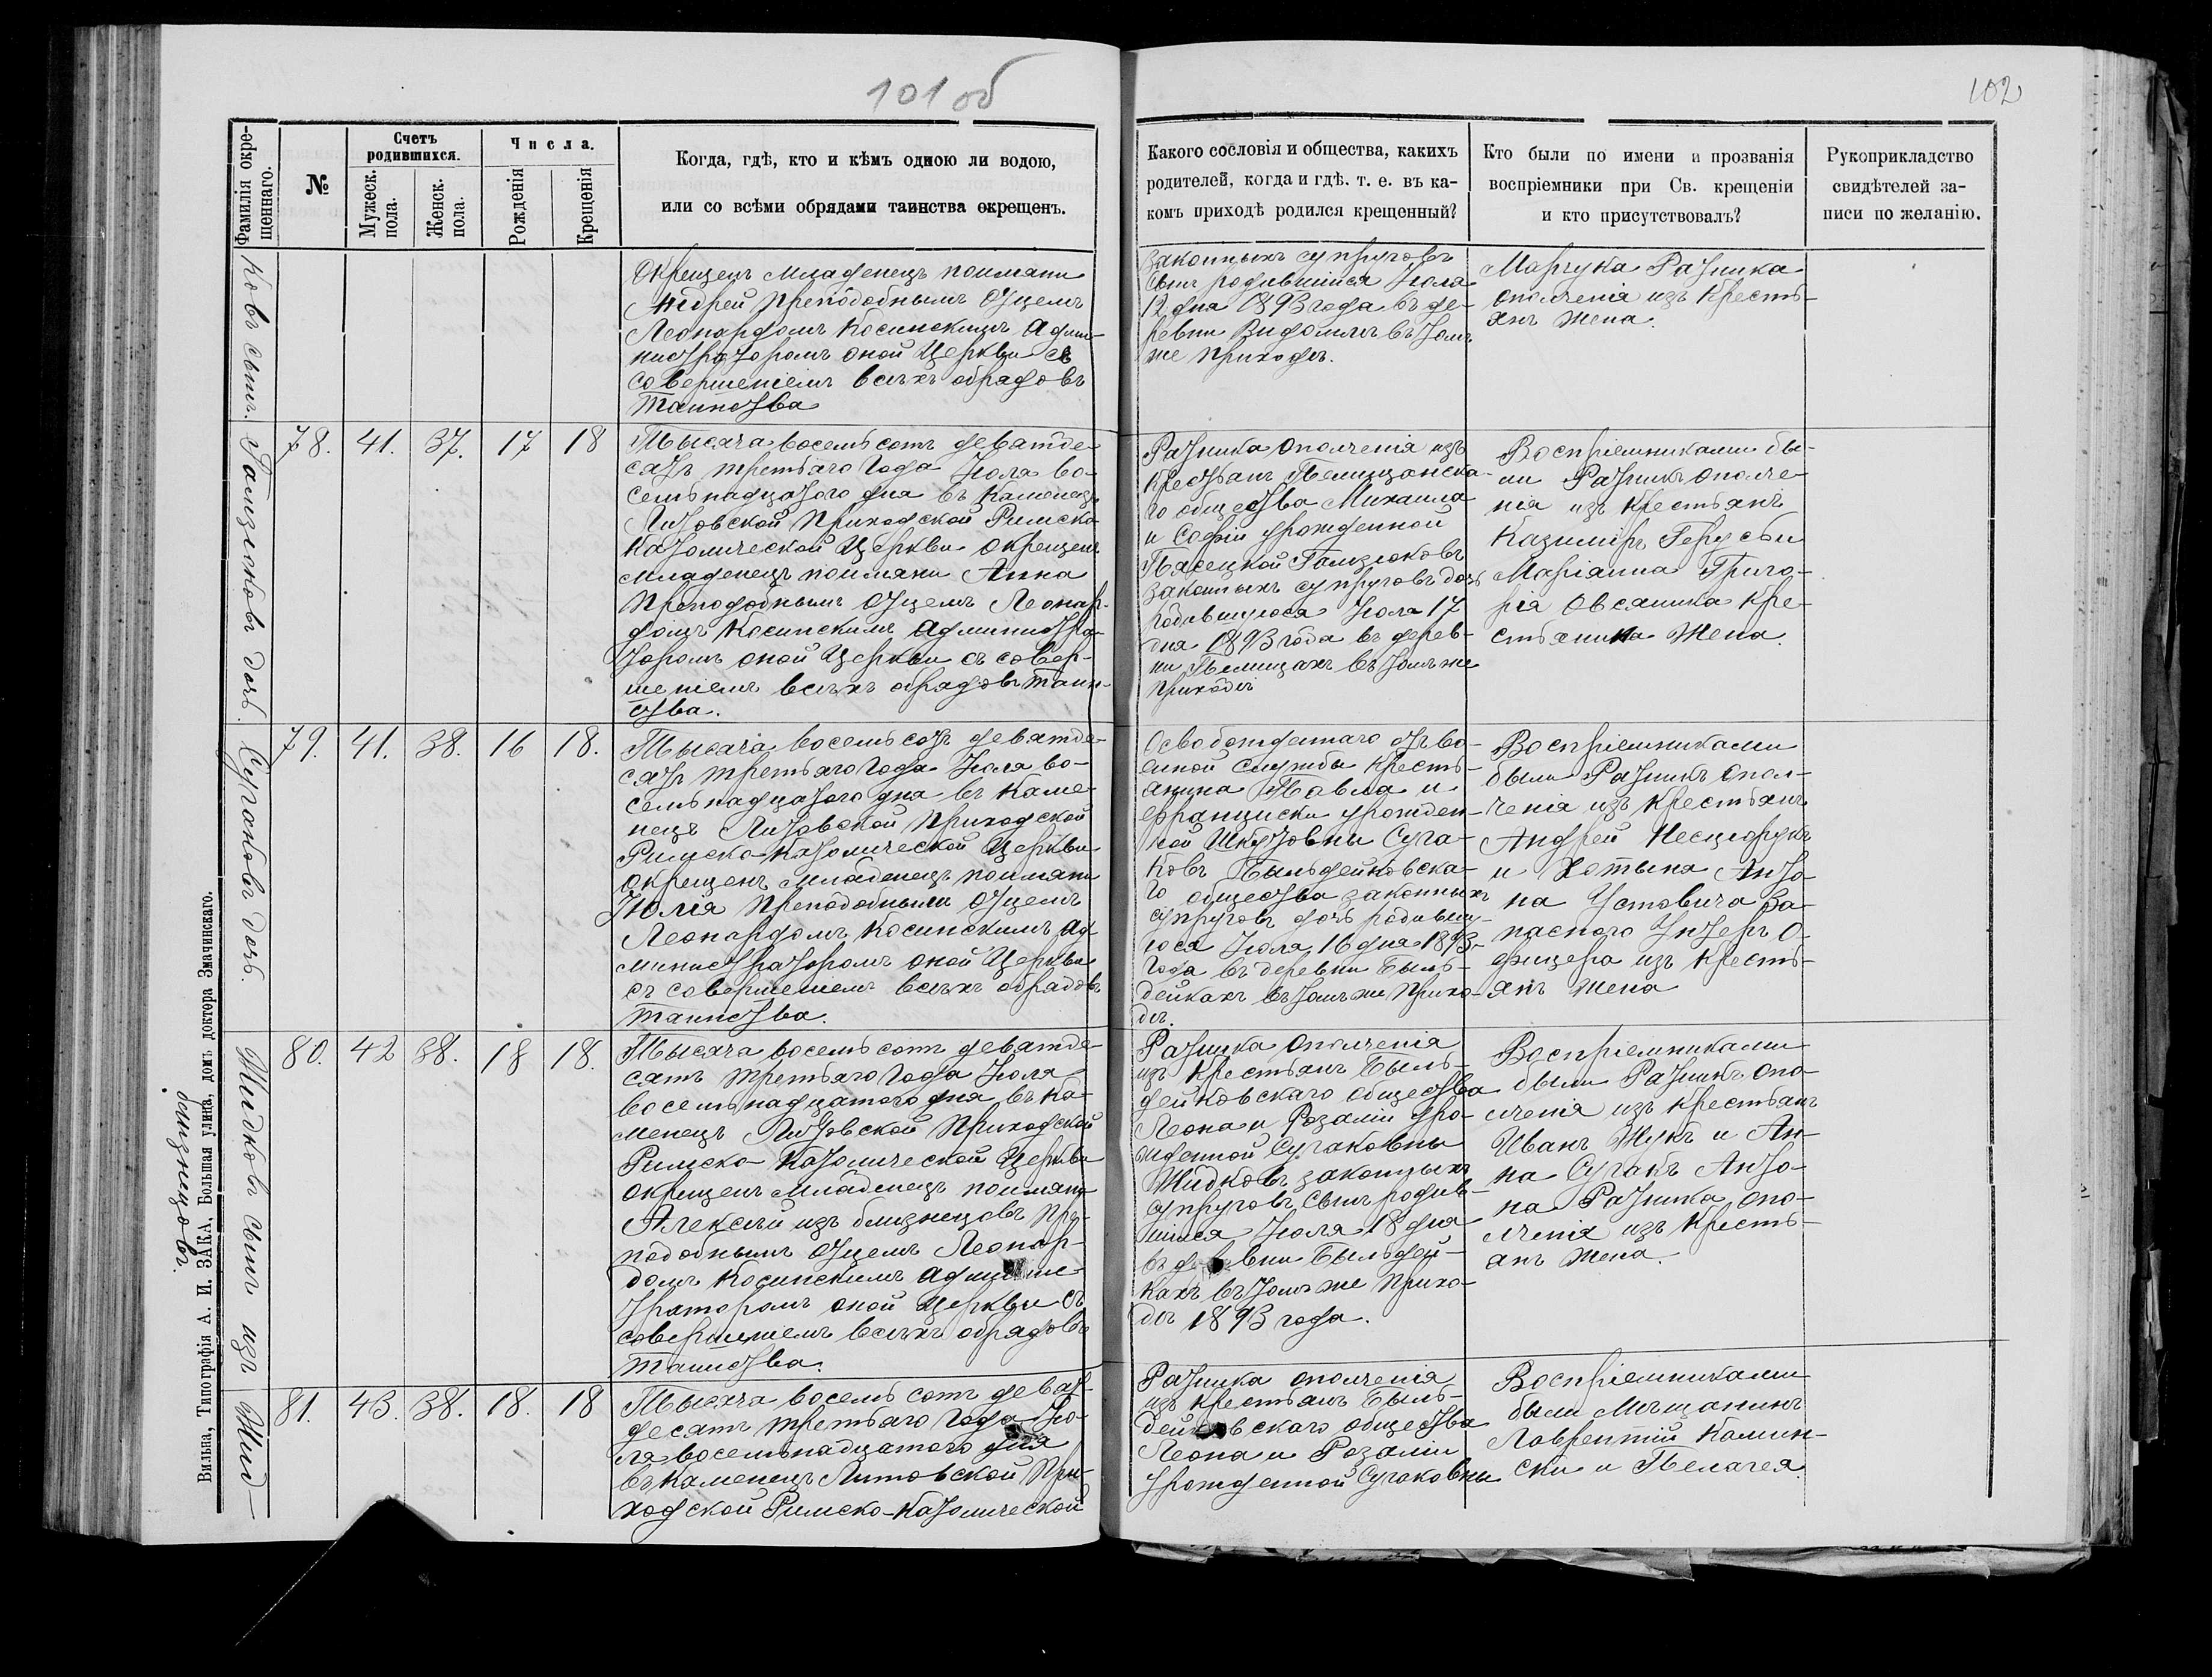 101 об
102
Фамилія окре-
щеннаго.
№
Счетъ
родившихся.
Мужеск.
пола.
Женск.
пола.
Числа.
Рожденія
Крещенія
Когда, гдѣ, кто и кѣмъ одною ли водою,
или со всѣми обрядами таинства окрещенъ.
Какого сословія и общества, какихъ
родителей, когда и гдѣ. т. е. въ ка-
комъ приходѣ родился крещенный?
Кто были по имени и прозванія
воспріемники при Св. крещеніи
и кто присутствовалъ?
Рукоприкладство
свидѣтелей за-
писи по желанію.
ковъ сынъ.
Окрещенъ младенецъ поимяни
Андрей Преподобнымъ Отцемъ
Леонардомъ Косинскимъ Адми-
нистраторомъ оной Церкви съ
совершеніемъ всѣхъ обрядовъ
Таинства
законныхъ супруговъ
сынъ родившійся Іюля
12 дня 1893 года въ де-
ревни Видомлѣ въ томъ
же приходѣ.
Марцука Ратника
ополченія изъ Кресть-
янъ жена.
Галзюковъ дочь.
78.
41.
37.
17
18
Тысяча восемьсотъ девятде-
сятъ третьяго Года Іюля во-
семьнадцатого дня въ Каменецъ
Литовской Приходской Римско
Католической Церкви окрещенъ
младенецъ поимяни Анна
Преподобнымъ Отцемъ Леонар-
домъ Косинскимъ Администра-
торомъ оной Церкви съ совер-
шеніемъ всѣхъ обрядовъ Таин-
ства.
Ратника Ополченія изъ
Крестьянъ Пелищанска-
го общества Михаила
и Софіи урожденной
Пясецкой Галзюковъ
законныхъ супруговъ дочь
родившуюся Іюля 17
дня 1893 года въ дерев-
ни Пелищахъ въ томъ же
приходѣ
Воспріемниками бы-
ли Ратникъ ополче
нія изъ Крестьянъ
Казиміръ Герусъ и
Маріанна Григо-
рія Овсяника Кре-
стьянина Жена.
Сугаковъ дочь.
79.
41.
38.
16
18.
Тысяча восемьсотъ девятде-
сятъ третьяго Года Іюля во-
семьнадцатого дня въ Каме-
нецъ Литовской Приходской
Римско-Католической Церкви
окрещенъ младенецъ поимяни
Юлія Преподобнымъ Отцемъ
Леонардомъ Косинскимъ Ад-
министраторомъ оной Церкви
съ совершеніемъ всѣхъ обрядовъ
таинства.
Освобожденнаго отъ во-
енной службы Кресть-
янина Павла и
Франциски урожден-
ной Шкутовны Суга-
ковъ Быльдейковска-
го общества законныхъ
супруговъ дочь родившу-
юся Іюля 16 дня 1893
Года въ деревни Быль-
дейкахъ въ томъ же прихо-
дѣ.
Воспріемниками
были Ратникъ опол-
ченія изъ Крестьянъ
Андрей Несцюрукъ
и Хотына Анто-
на Устовича За-
паснаго Унтеръ О-
фицера изъ Кресть-
янъ жена
Жидковъ сынъ изъ
близнецовъ.
80.
42
38.
18
18.
Тысяча восемьсотъ девятде-
сятъ третьяго Года Іюля
восемьнадцатого дня въ Ка-
менецъ Литовской Приходской
Римско-Католической Церкви
окрещенъ младенецъ поимяни
Алексѣй изъ близнецовъ Пре-
подобнымъ Отцемъ Леонар-
домъ Косинскимъ Админис-
траторомъ оной Церкви съ
совершеніемъ всѣхъ обрядовъ
Таинства.
Ратника Ополченія
изъ Крестьянъ Быль-
дейковскаго общества
Леона и Розаліи уро-
жденной Сугаковны
Жидковъ законныхъ
супруговъ сынъ родив-
шійся Іюля 18 дня
въ деревни Быльдей-
кахъ въ томъ же прихо-
дѣ 1893 года.
Воспріемниками
были Ратникъ опо-
лченія изъ крестьянъ
Иванъ Жукъ и Ан-
на Сугакъ Анто-
на Ратника опо-
лченія изъ Кресть-
янъ жена.
Жид-
81.
43.
38.
18.
18
Тысяча восемьсотъ девят-
десятъ третьяго Года Ію-
ля восемьнадцатого дня
въ Каменецъ Литовской При-
ходской Римско-Католической
Ратника ополченія
изъ Крестьянъ Быль-
дейковскаго общества
Леона и Розаліи
урожденной Сугаковны
Воспріемниками
были Мѣщанинъ
Лаврентій Камин-
ски и Пелагея
Вильна, Типографія А. И. ЗАКА, Большая улица, домъ доктора Значинскаго.